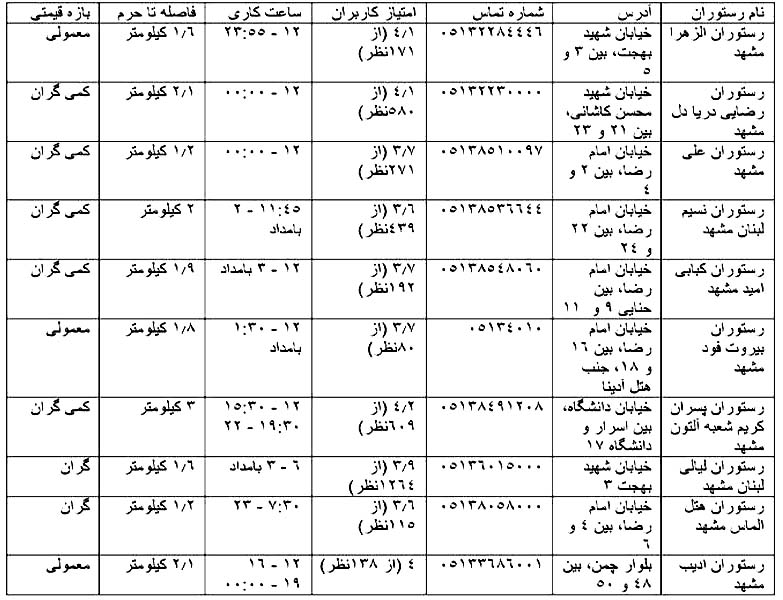 نام رستوران	آدرس	شماره تماس	امتیاز کاربران	ساعت کاری	فاصله تا حرم	بازه قیمتی
رستوران الزهرا	خیابان شهید	۰۵۱۳۲۲۸۴۴۴۶	۴٫۱ (از	۱۲ - ۲۳:۵۵	۱٫۶ کیلومتر	معمولی
مشهد	بهجت، بین ۳ و	۱۷۱نظر)
۵
رستوران	خیابان شهید	۰۵۱۳۲۲۳۰۰۰۰	۴٫۱ (از	۱۲ - ۰۰:۰۰	۲٫۱ کیلومتر	کمی گران
رضایی دریا دل	محسن کاشانی،	۵۸۰نظر)
مشهد	بین ۲۱ و ۲۳
رستوران علی	خیابان امام	۰۵۱۳۸۵۱۰۰۹۷	۳٫۷ (از	۱۲ - ۰۰:۰۰	۱٫۲ کیلومتر	کمی گران
مشهد	رضا، بین ۲ و	۲۷۱نظر)
۴
رستوران نسیم	خیابان امام	۰۵۱۳۸۵۳۶۶۴۴	۳٫۶ (از	۱۱:۴۵ - ۲	۲ کیلومتر	کمی گران
لبنان مشهد	رضا، بین ۲۲	۴۳۹نظر)	بامداد
و ۲۴
رستوران کبابی	خیابان امام	۰۵۱۳۸۵۴۸۰۶۰	۳٫۷ (از	۱۲ - ۳ بامداد	۱٫۹ کیلومتر	کمی گران
امید مشهد	رضا، بین	۱۹۲نظر)
حنایی ۹ و ۱۱
رستوران	خیابان امام	۰۵۱۳۴۰۱۰	۳٫۷ (از	۱۲ - ۱:۳۰	۱٫۸ کیلومتر	معمولی
بیروت فود	رضا، بین ۱۶	۸۰نظر)	بامداد
مشهد	و ۱۸، جنب
هتل آدینا
رستوران پسران	خیابان دانشگاه،	۰۵۱۳۸۴۹۱۲۰۸	۴٫۲ (از	۱۲ - ۱۵:۳۰	۳ کیلومتر	کمی گران
کریم شعبه آلتون	بین اسرار و	۶۰۹نظر)	۱۹:۳۰ - ۲۲
مشهد	دانشگاه ۱۷
رستوران لیالی	خیابان شهید	۰۵۱۳۶۰۱۵۰۰۰	۳٫۹ (از	۶ - ۳ بامداد	۱٫۶ کیلومتر	گران
لبنان مشهد	بهجت ۳	۱۲۶۴نظر)
رستوران هتل	خیابان امام	۰۵۱۳۸۰۵۸۰۰۰	۳٫۶ (از	۷:۳۰ - ۲۳	۱٫۲ کیلومتر	گران
الماس مشهد	رضا، بین ۴ و	۱۱۵نظر)
۶
رستوران ادیب	بلوار چمن، بین	۰۵۱۳۳۶۸۶۰۰۱	۴ (از ۱۳۸نظر)	۱۲ - ۱۶	۲٫۱ کیلومتر	معمولی
مشهد	۴۸ و ۵۰	۱۹ - ۰۰:۰۰